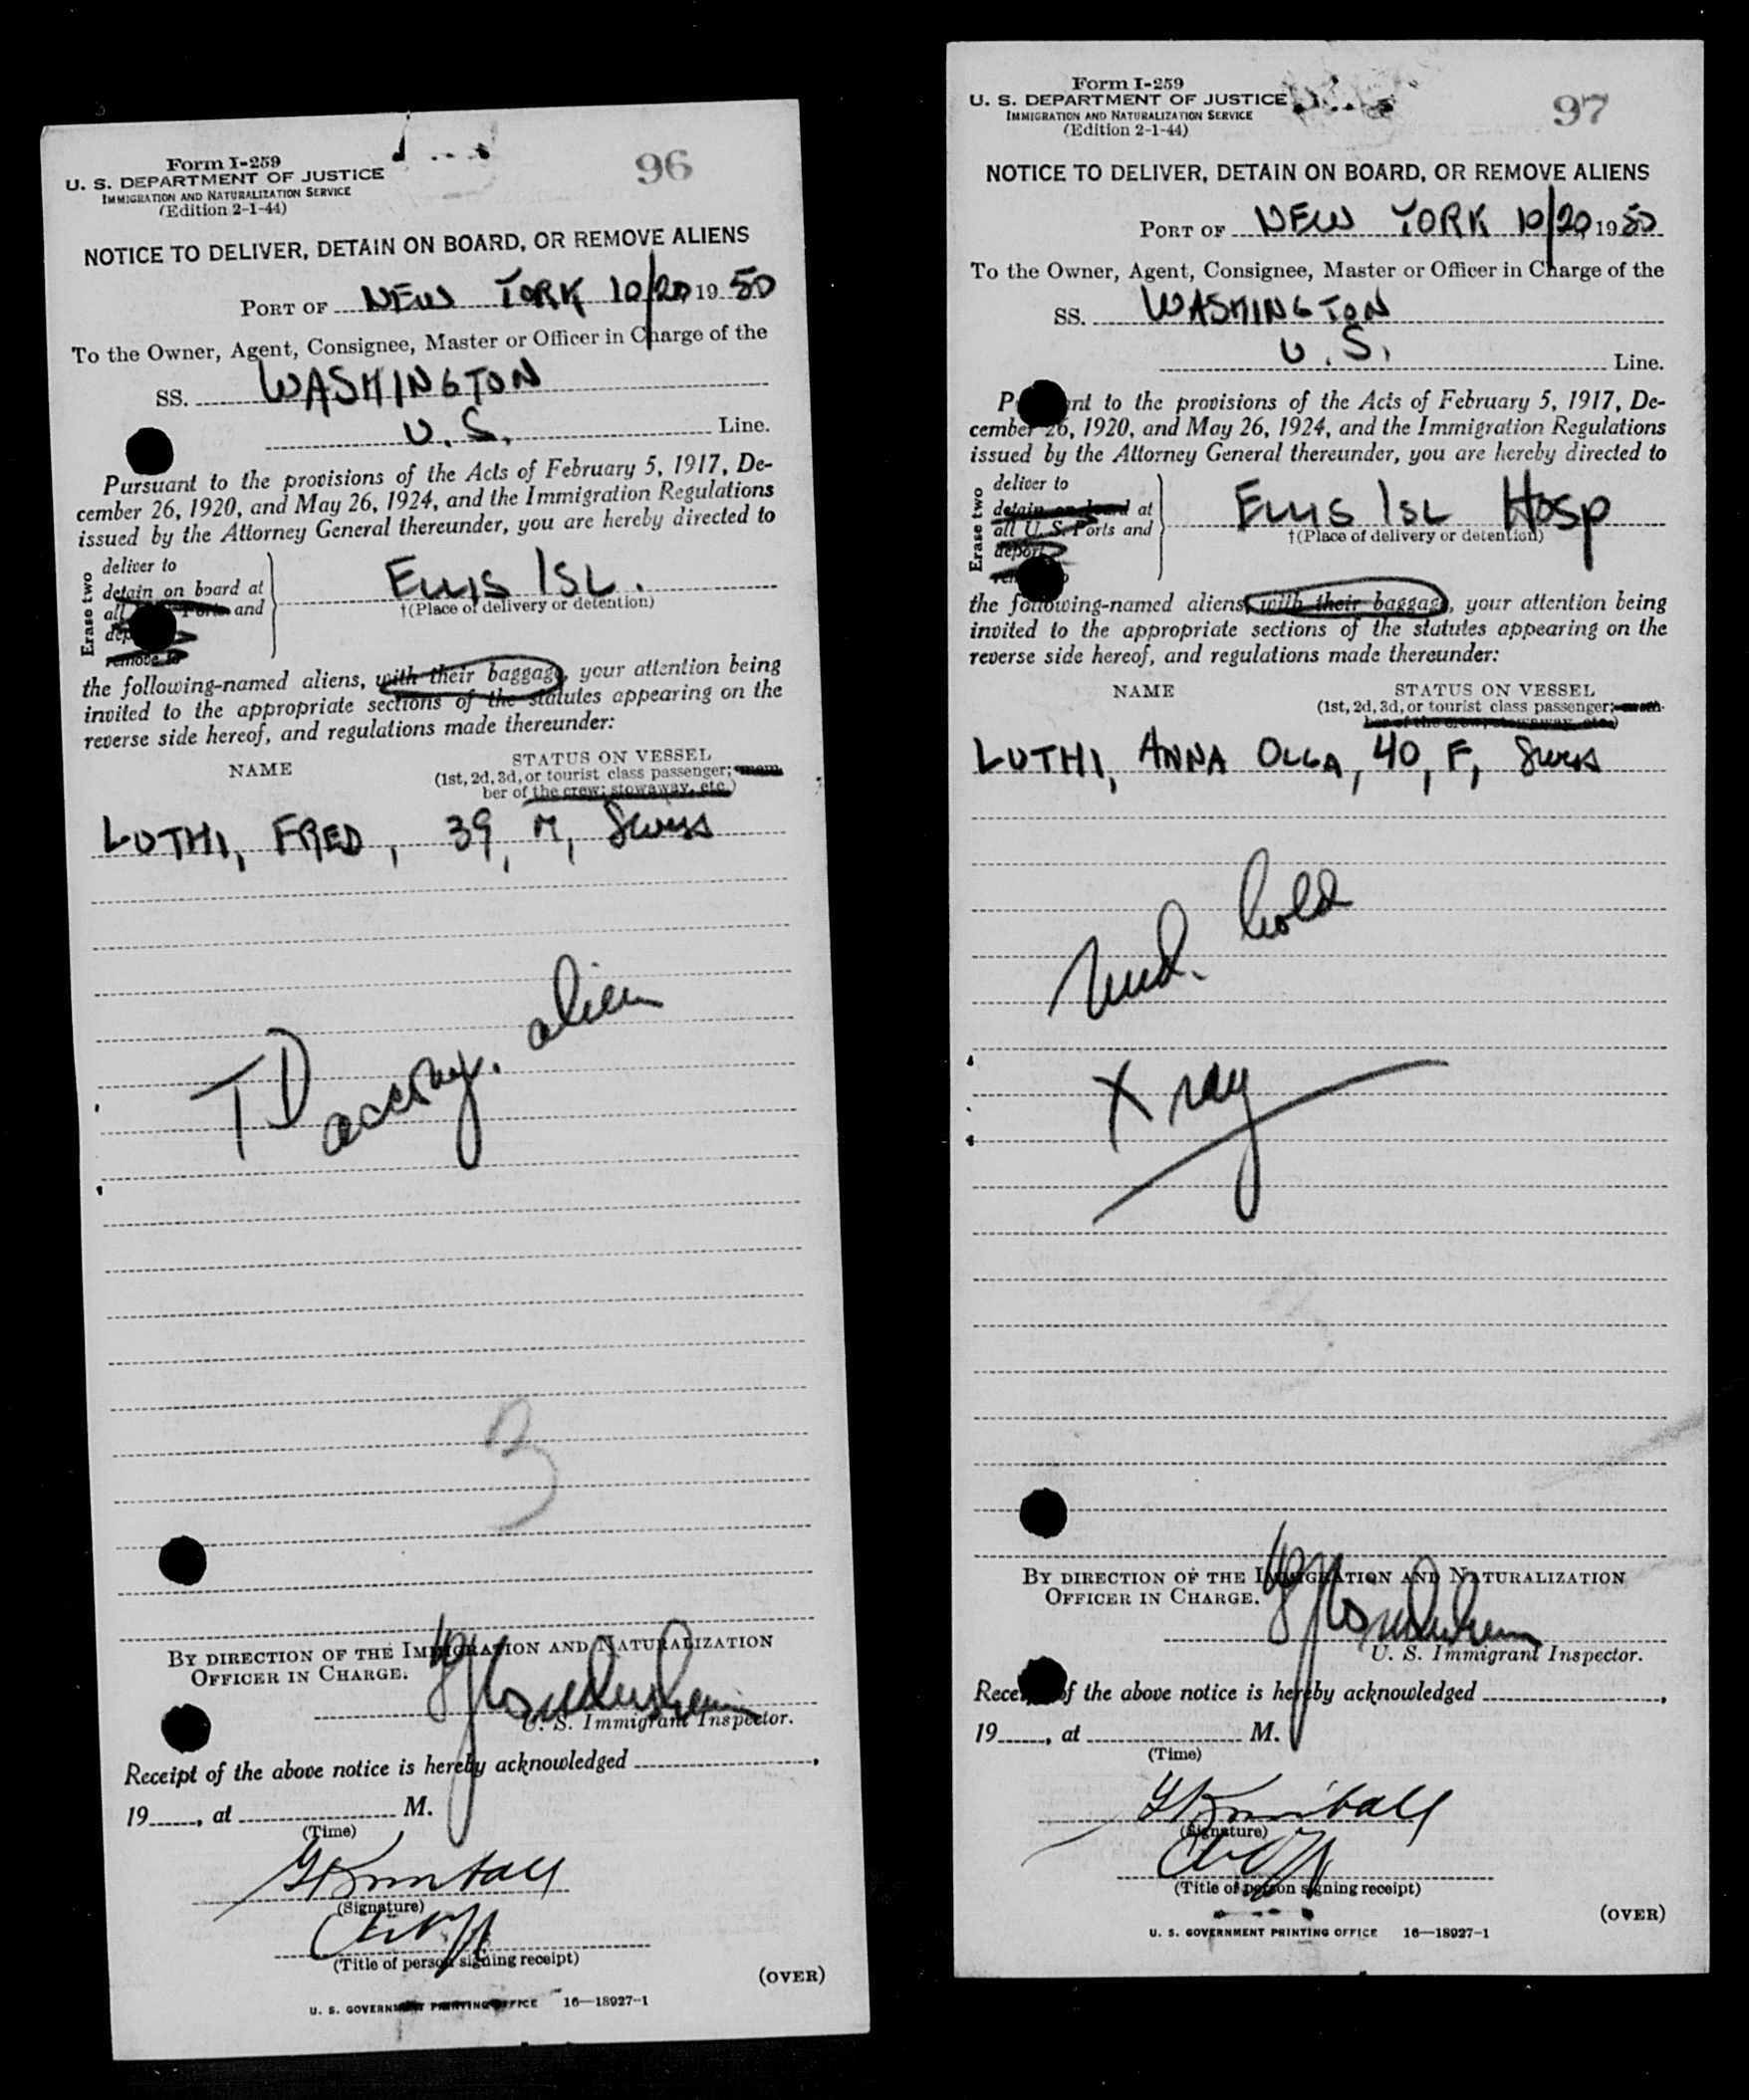 Form I-259
U. S. DEPARTMENT OF JUSTICE
IMMIGRATION AND NATURALIZATION SERVICE
(Edition 2-1-44)
96
NOTICE TO DELIVER, DETAIN ON BOARD, OR REMOVE ALIENS
PORT OF NEW YORK 10/20, 1950
To the Owner, Agent, Consignee, Master or Officer in Charge of the
SS. WASHINGTON
U.S. Line.
Pursuant to the provisions of the Acts of February 5, 1917, De-
cember 26, 1920, and May 26, 1924, and the Immigration Regulations
issued by the Attorney General thereunder, you are hereby directed to
Erase two
deliver to
detain on board at
all Ports and
remove to
ELLIS ISL.
†(Place of delivery or detention)
the following-named aliens, with their baggage, your attention being
invited to the appropriate sections of the statutes appearing on the
reverse side hereof, and regulations made thereunder:
NAME STATUS ON VESSEL
(1st, 2d, 3d, or tourist class passenger; mem-
ber of the crew; stowaway, etc.)
LUTHI, FRED, 39, M, Swiss
TD accomp. alien
3
BY DIRECTION OF THE IMMIGRATION AND NATURALIZATION
OFFICER IN CHARGE.
U. S. Immigrant Inspector.
Receipt of the above notice is hereby acknowledged
19, at M.
(Time)
Kimball
(Signature)
(Title of person signing receipt)
(OVER)
U. S. GOVERNMENT PRINTING OFFICE 16—18927-1
Form I-259
U. S. DEPARTMENT OF JUSTICE
IMMIGRATION AND NATURALIZATION SERVICE
(Edition 2-1-44)
97
NOTICE TO DELIVER, DETAIN ON BOARD, OR REMOVE ALIENS
PORT OF NEW YORK 10/20, 1950
To the Owner, Agent, Consignee, Master or Officer in Charge of the
SS. WASHINGTON
U.S. Line.
Pursuant to the provisions of the Acts of February 5, 1917, De-
cember 26, 1920, and May 26, 1924, and the Immigration Regulations
issued by the Attorney General thereunder, you are hereby directed to
Erase two
deliver to
detain on board at
all U. S. Ports and
deport
ELLIS ISL HOSP
†(Place of delivery or detention)
the following-named aliens, with their baggage, your attention being
invited to the appropriate sections of the statutes appearing on the
reverse side hereof, and regulations made thereunder:
NAME STATUS ON VESSEL
(1st, 2d, 3d, or tourist class passenger; mem-
ber of the crew; stowaway, etc.)
LUTHI, ANNA OLGA, 40, F, Swiss
Med. hold
X ray
BY DIRECTION OF THE IMMIGRATION AND NATURALIZATION
OFFICER IN CHARGE.
U. S. Immigrant Inspector.
Receipt of the above notice is hereby acknowledged
19, at M.
(Time)
Kimball
(Signature)
(Title of person signing receipt)
(OVER)
U. S. GOVERNMENT PRINTING OFFICE 16—18927-1